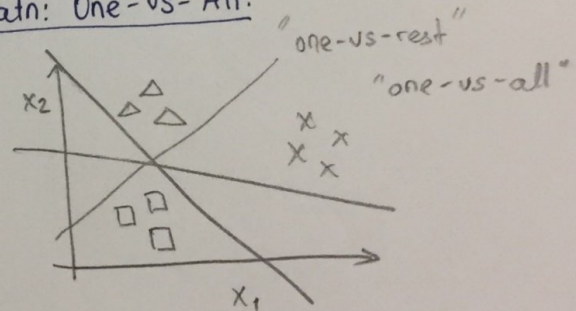 One-vs-All:
"one-vs-rest"
"one-vs-all"
x₂
x₁